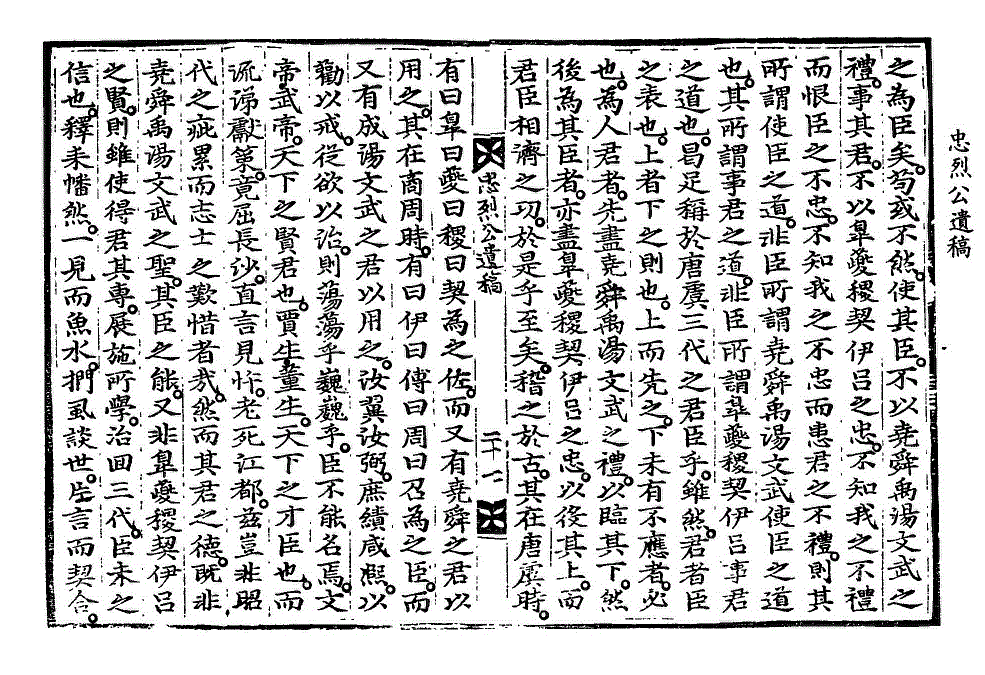 忠烈公遺稿
之為臣矣。苟或不然。使其臣。不以堯舜禹湯文武之
禮。事其君。不以皐夔稷契伊呂之忠。不知我之不禮
而恨臣之不忠。不知我之不忠而恚君之不禮。則其
所謂使臣之道。非臣所謂堯舜禹湯文武使臣之道
也。其所謂事君之道。非臣所謂皐夔稷契伊呂事君
之道也。曷足稱於唐虞三代之君臣乎。雖然。君者臣
之表也。上者下之則也。上而先之。下未有不應者。必
也。為人君者。先盡堯舜禹湯文武之禮。以臨其下。然
後為其臣者。亦盡皐夔稷契伊呂之忠。以後其上。而
君臣相濟之功。於是乎至矣。稽之於古。其在唐虞時。
忠烈公遺稿
二十一
有曰皐曰夔曰稷曰契為之佐。而又有堯舜之君以
用之。其在商周時。有曰伊曰傅曰周曰召為之臣。而
又有成湯文武之君以用之。汝翼汝弼。庶績咸熈。以
勸以戒。從欲以治。則蕩蕩乎巍巍乎。臣不能名焉。文
帝武帝。天下之賢君也。賈生董生。天下之才臣也。而
流涕獻策。竟屈長沙。直言見忤。老死江都。兹豈非昭
代之疵累而志士之歎惜者㢤。然而其君之德。旣非
堯舜禹湯文武之聖。其臣之能。又非皐夔稷契伊呂
之賢。則雖使得君其專。展施所學。治回三代。臣未之
信也。釋耒幡然。一見而魚水。捫虱談世。片言而契合。